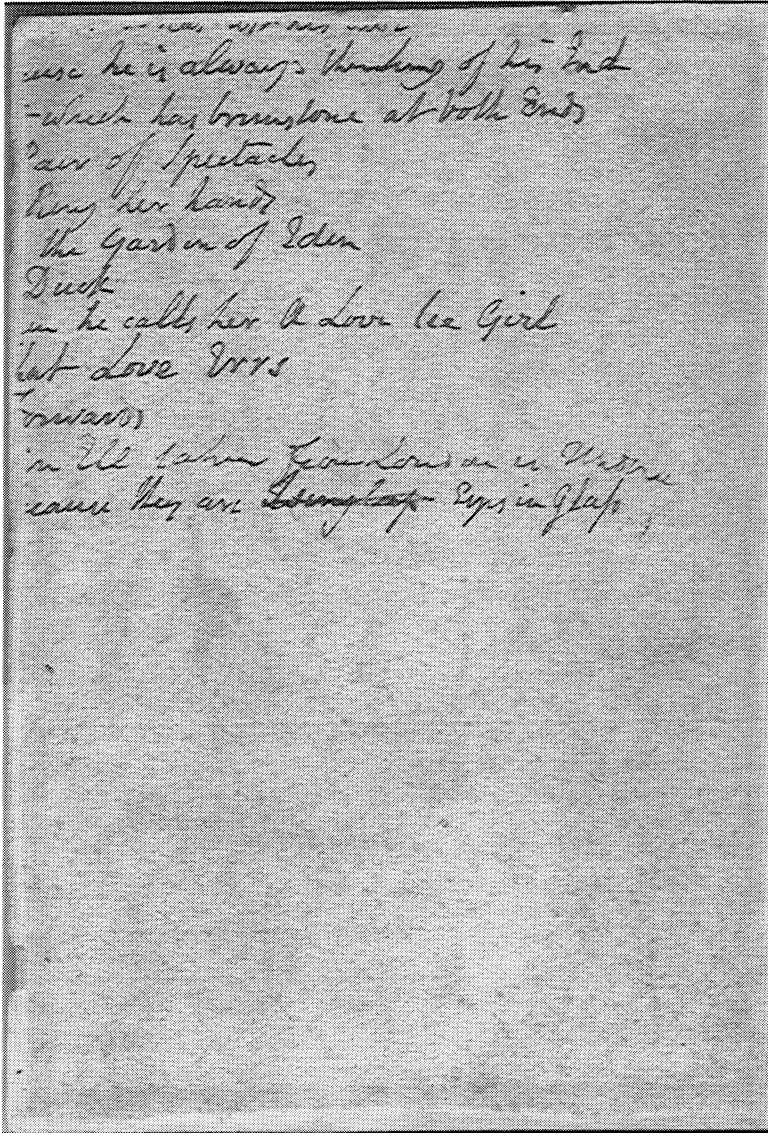 ause he is always thinking of his End
-which has brimstone at both Ends
Pair of Spectacles
Ring her hands
the Garden of Eden
Duck
he calls her A Love lee Girl
hat Love Errs
orwards
in Ell taken from London is
cause they are Isinglass Eyes in Glass